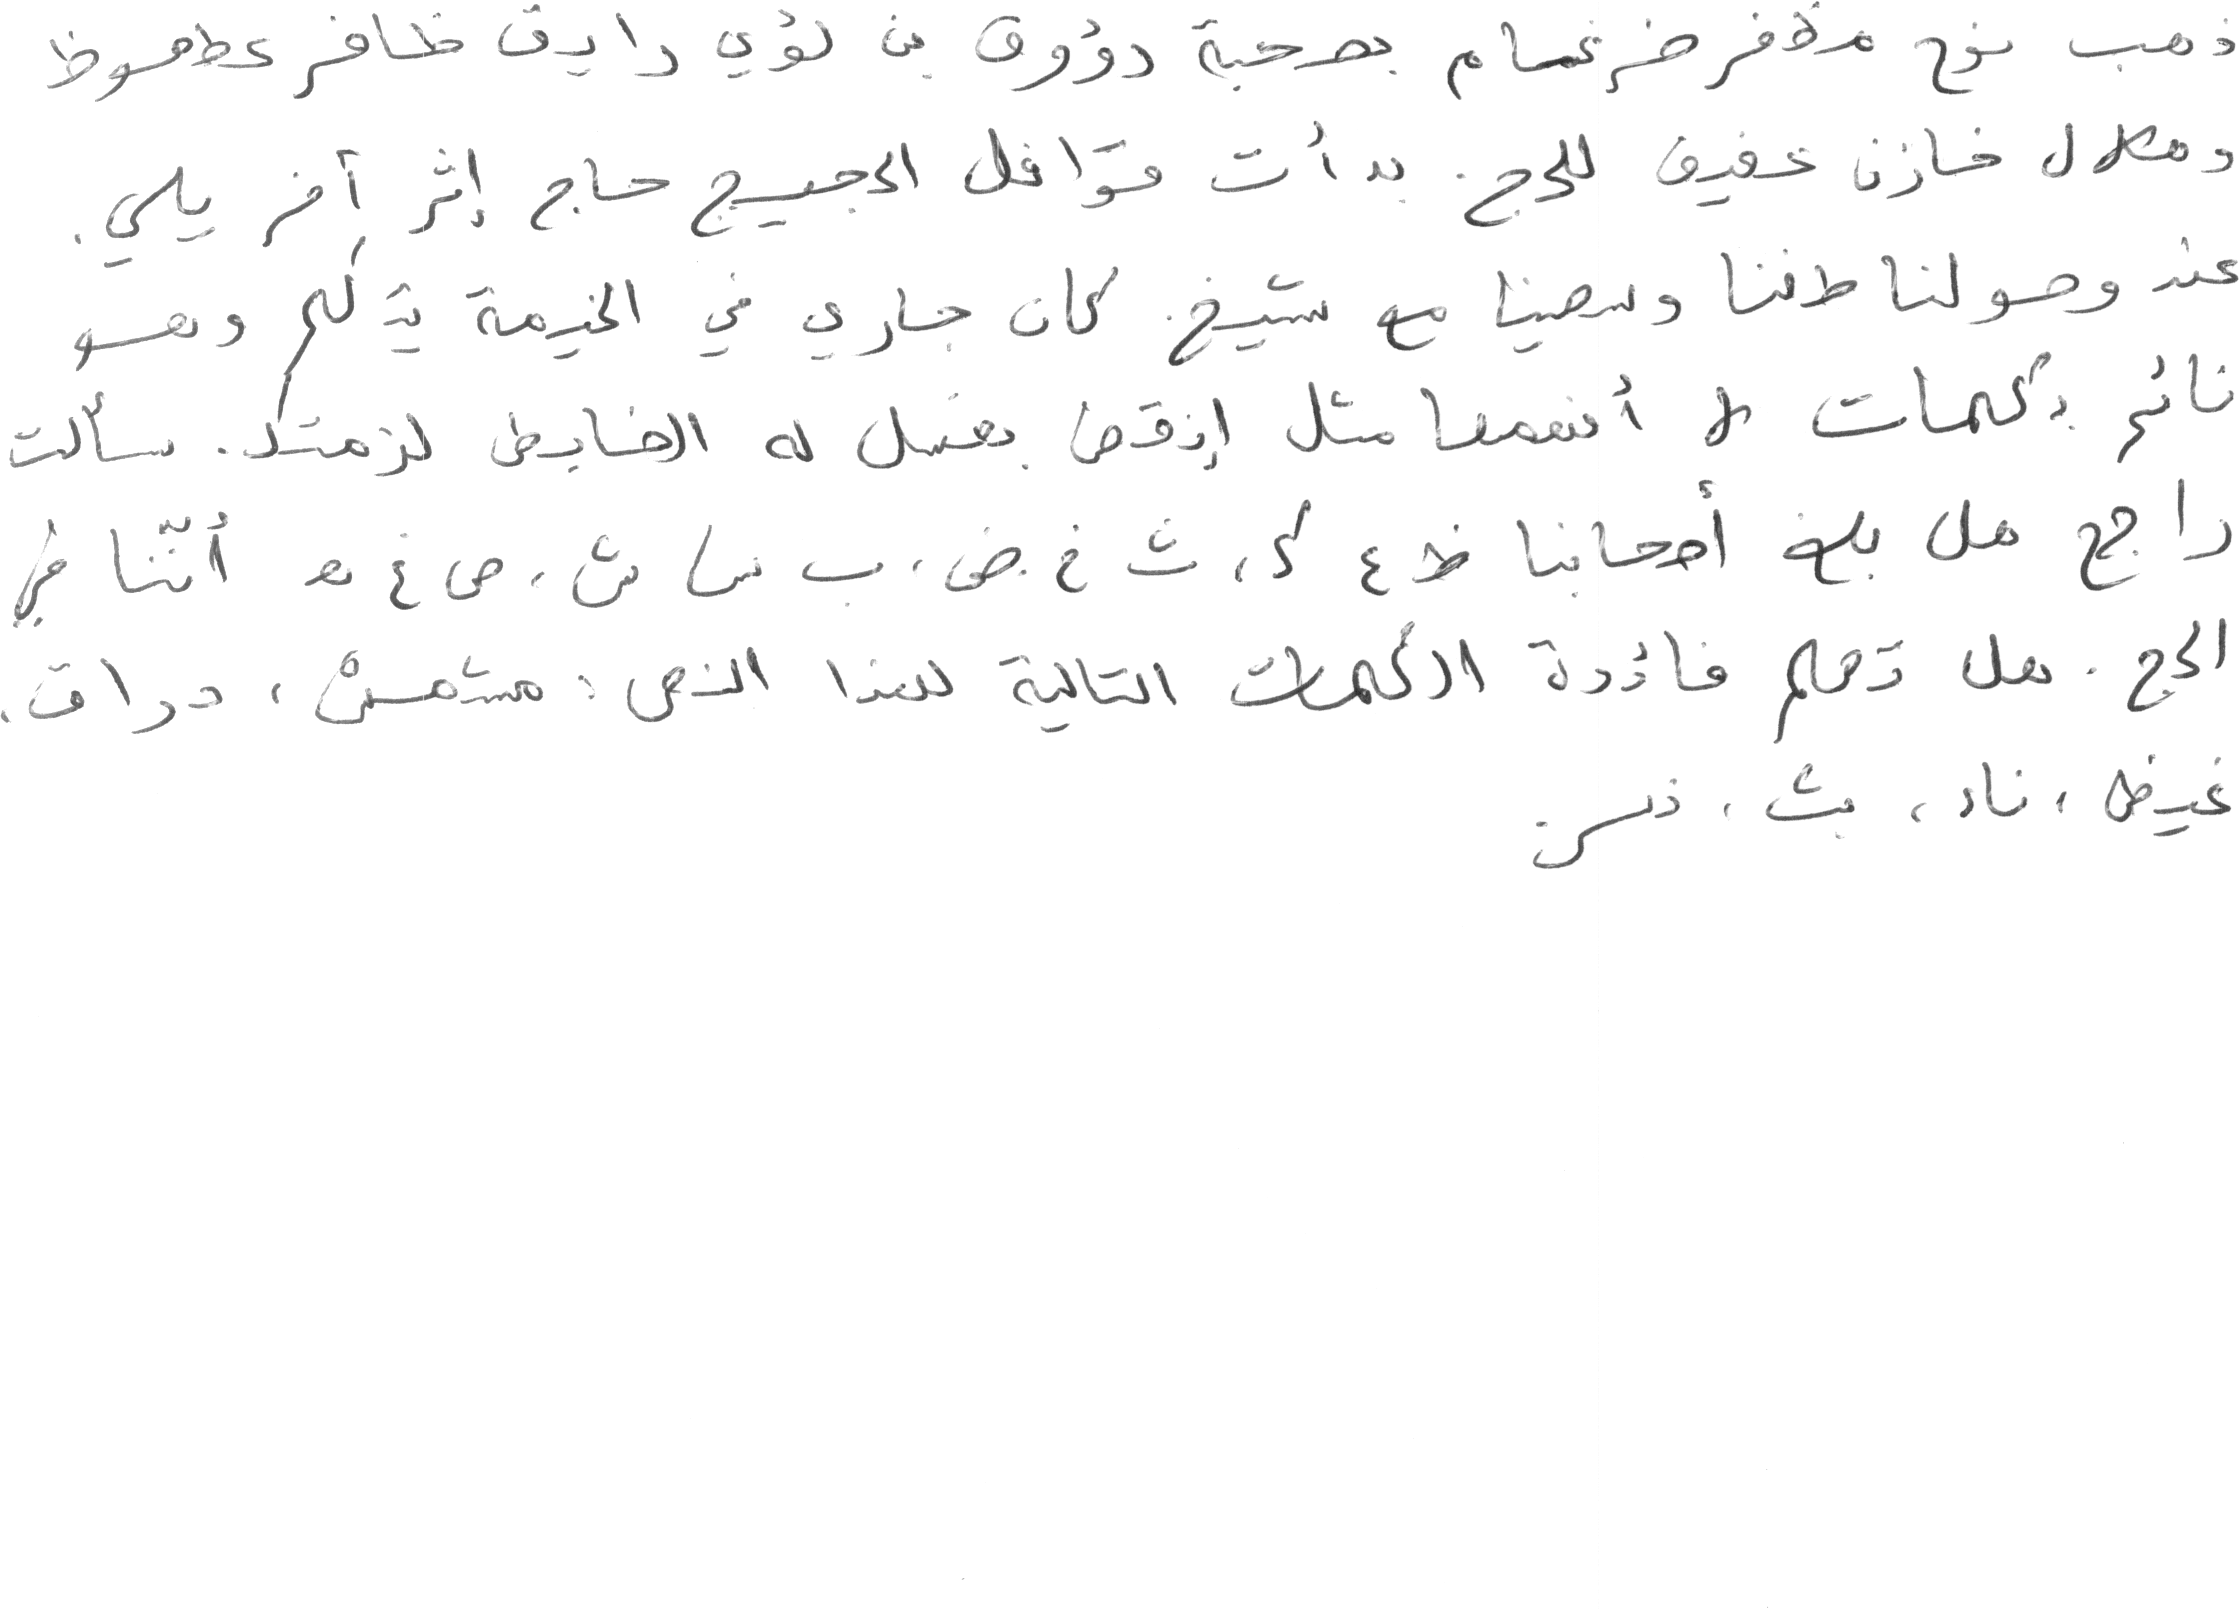 ذهب نوح مظفر ضرغام بصحبة رؤوف بن لؤي رايق ظافر عطعوط
وهلال خازن عفيف للحج. بدأت قوافل الحجيج حاج إثر آخر يلبي.
عند وصولنا طفنا وسعينا مع شيخ. كان جاري في الخيمة يتكلم وهو
نائم بكلمات لا أفهمها مثل إزقض بعسل له الضابط لزمتك. سألت
راجح هل بلغ أصحابنا ظ ع ك، ث غ ض، ب س ش، ص غ ه أننا في
الحج. هل تعلم فائدة الكلمات التالية لهذا النص: مشمش، دراق،
غيظ، ناد، بث، نسر.